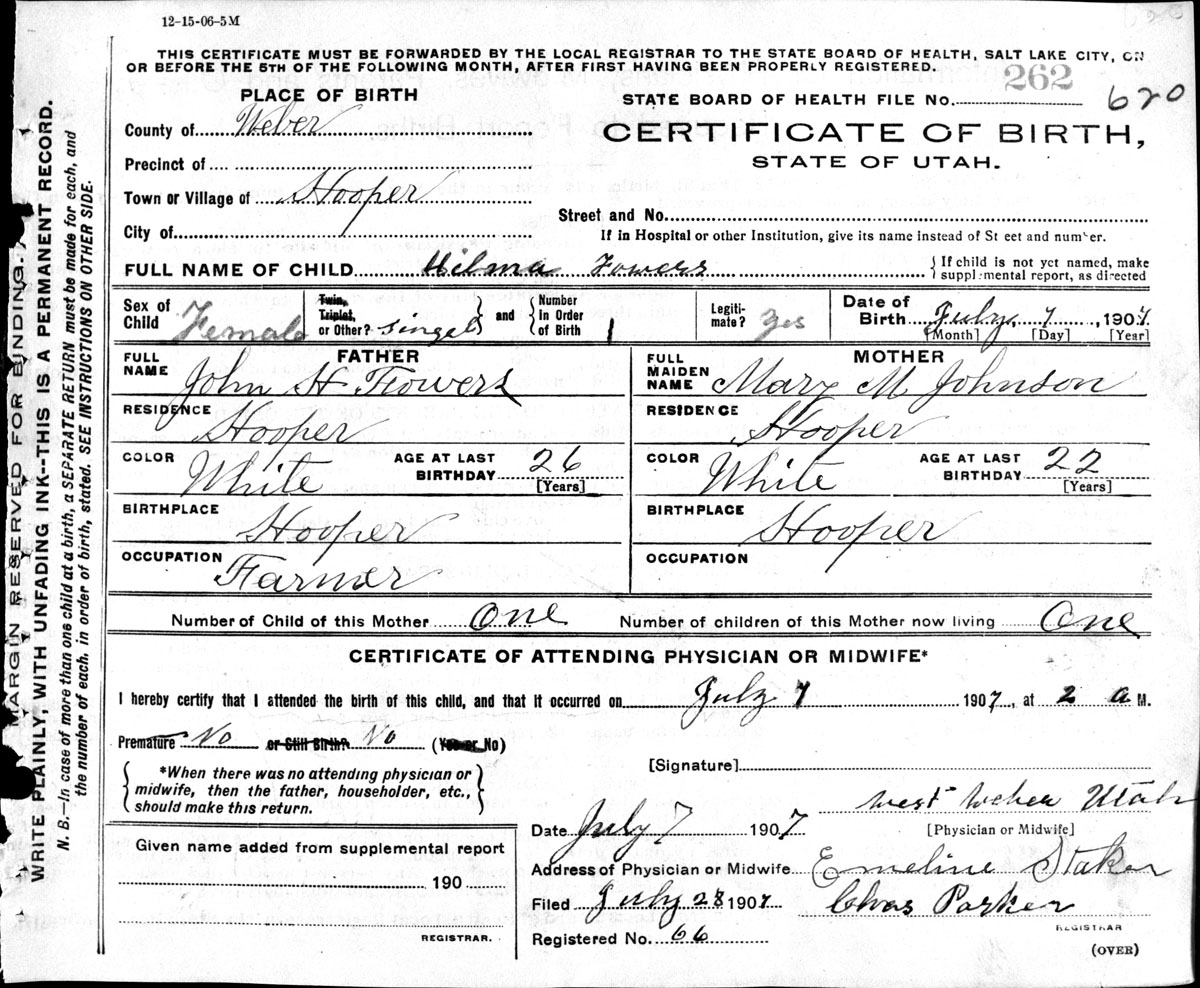 12-15-06-5M
THIS CERTIFICATE MUST BE FORWARDED BY THE LOCAL REGISTRAR TO THE STATE BOARD OF HEALTH, SALT LAKE CITY, ON
OR BEFORE THE 5TH OF THE FOLLOWING MONTH, AFTER FIRST HAVING BEEN PROPERLY REGISTERED.
262
620
PLACE OF BIRTH
STATE BOARD OF HEALTH FILE No.
County of Weber
CERTIFICATE OF BIRTH,
STATE OF UTAH.
Precinct of
Town or Village of Hooper
Street and No.
City of
If in Hospital or other Institution, give its name instead of St eet and number.
FULL NAME OF CHILD Hilma Fowers
If child is not yet named, make
supplmental report, as directed
Sex of Child Female
Twin, Triplet, or Other? singel
and Number In Order of Birth 1
Legitimate? Yes
Date of Birth July, 7, 1907
[Month] [Day] [Year]
FATHER
FULL NAME John H Fowers
RESIDENCE Hooper
COLOR White AGE AT LAST BIRTHDAY 26 [Years]
BIRTHPLACE Hooper
OCCUPATION Farmer
MOTHER
FULL MAIDEN NAME Mary M Johnson
RESIDENCE Hooper
COLOR White AGE AT LAST BIRTHDAY 22 [Years]
BIRTHPLACE Hooper
OCCUPATION
Number of Child of this Mother One Number of children of this Mother now living One
CERTIFICATE OF ATTENDING PHYSICIAN OR MIDWIFE*
I hereby certify that I attended the birth of this child, and that it occurred on July 7 1907, at 2 a M.
Premature No or Still Birth? No (Yes or No)
[Signature]
*When there was no attending physician or
midwife, then the father, householder, etc.,
should make this return.
West Weber Utah
Date July 7 1907 [Physician or Midwife]
Given name added from supplemental report
190
REGISTRAR.
Address of Physician or Midwife Emeline Staker
Filed July 28 1907 Chas Parker
REGISTRAR
Registered No. 66
(OVER)
MARGIN RESERVED FOR BINDING.
WRITE PLAINLY, WITH UNFADING INK--THIS IS A PERMANENT RECORD.
N. B.—In case of more than one child at a birth, a SEPARATE RETURN must be made for each, and
the number of each, in order of birth, stated. SEE INSTRUCTIONS ON OTHER SIDE.